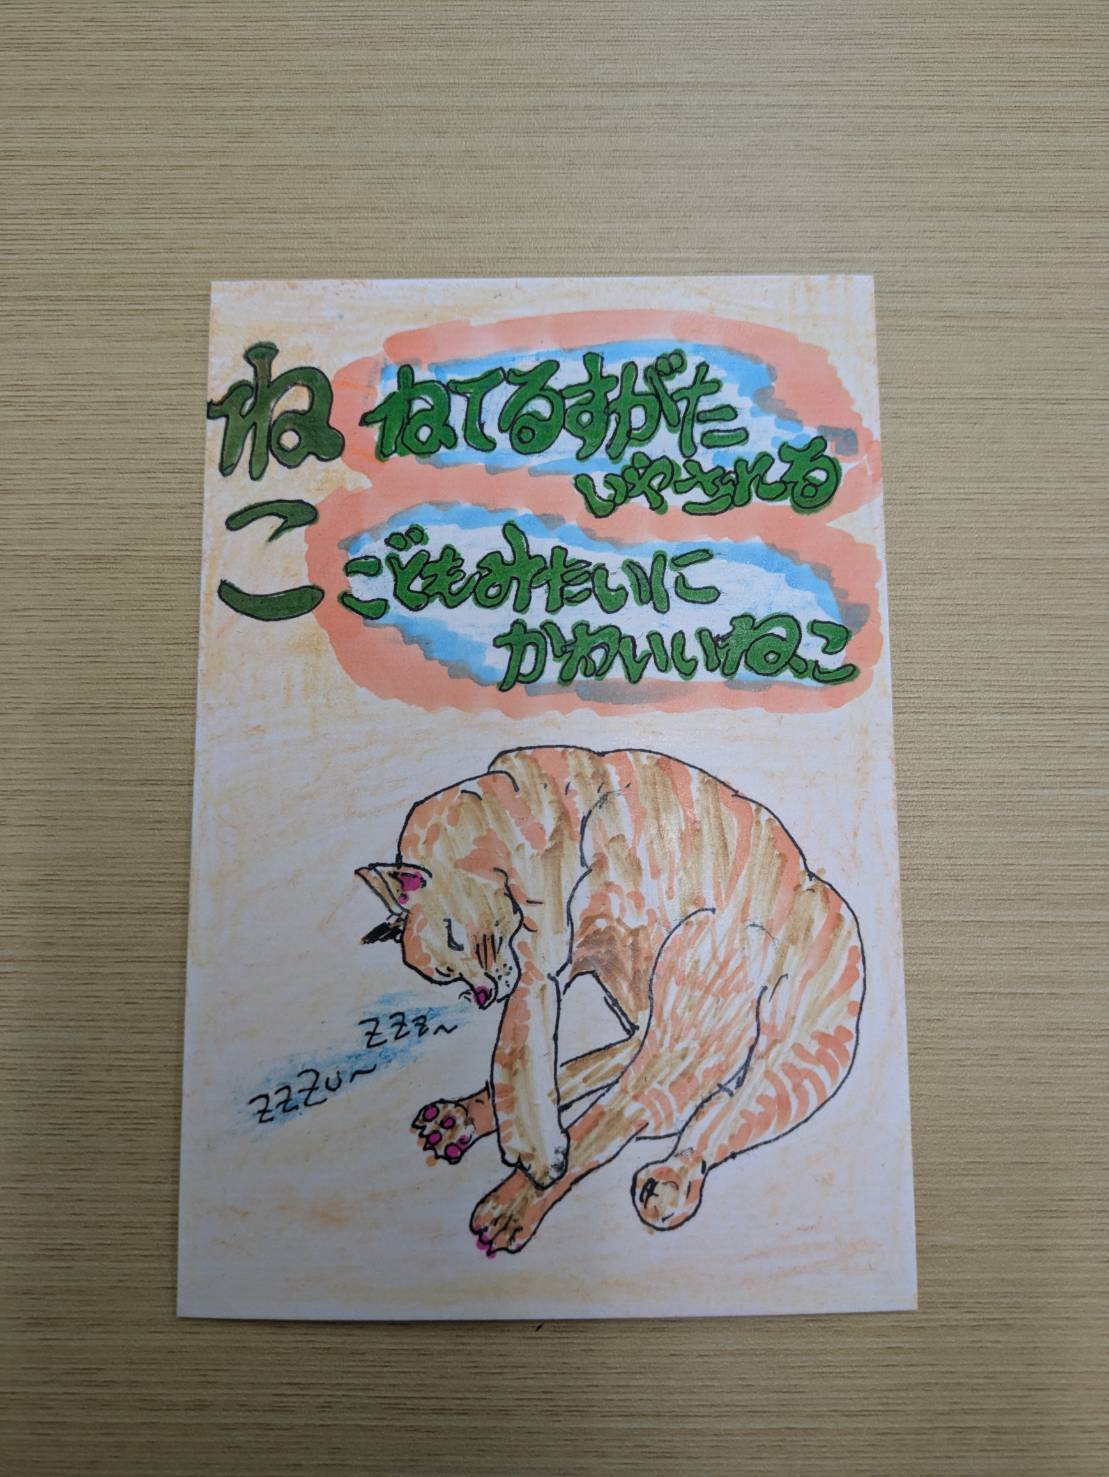 ねこ
ねてるすがた
いやされる
こどもみたいに
かわいいねこ
zzz~
zzZu~